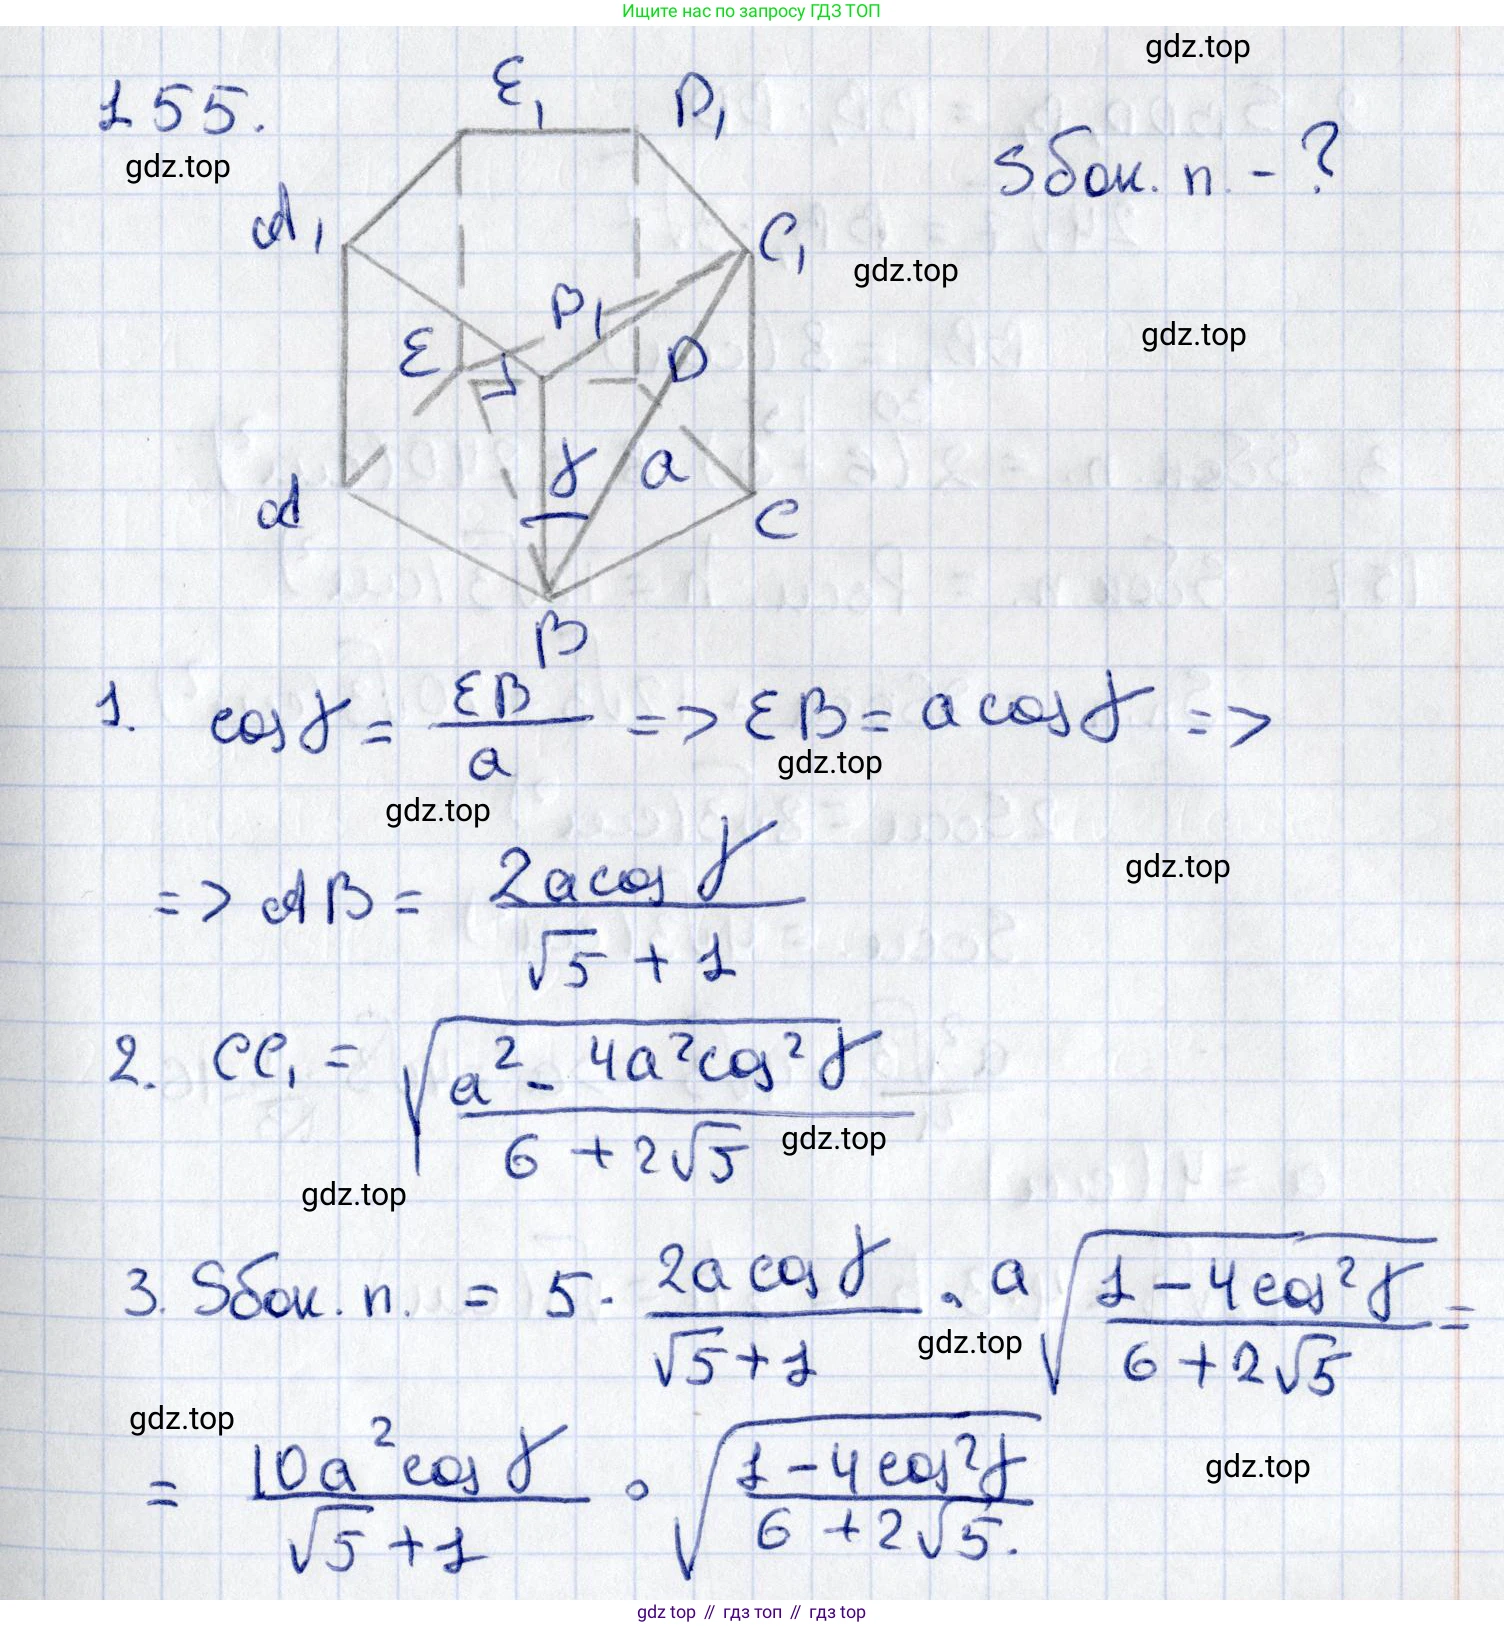 Ищите нас по запросу ГДЗ ТОП
gdz.top
155.
gdz.top
E₁ D₁
A₁ C₁
Sбок. п. - ?
gdz.top
gdz.top
B₁
E D
γ a
A C
B
1. cos γ = EB/a => EB = a cos γ =>
gdz.top
gdz.top
=> AB = 2a cos γ / (√5 + 1)
gdz.top
2. CC₁ = √((a² - 4a² cos² γ) / (6 + 2√5))
gdz.top
gdz.top
3. Sбок. п. = 5 · 2a cos γ / (√5 + 1) · a √((1 - 4 cos² γ) / (6 + 2√5)) =
gdz.top
gdz.top
= 10a² cos γ / (√5 + 1) · √((1 - 4 cos² γ) / (6 + 2√5)).
gdz.top
gdz top // гдз топ // гдз top